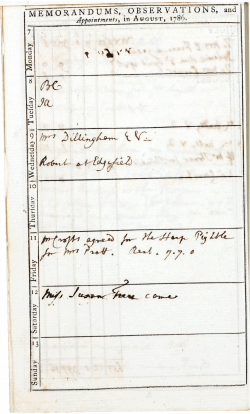 MEMORANDUMS, OBSERVATIONS, and
Appointments, in AUGUST, 1786.
7
Monday
8
Tuesday
9
Wednesday
Mrs Dillingham &
Robert at Edgefield
10
Thursday
11
Friday
Mr Crofts agreed for the Sheep Pightle
for Mrs Pratt. Rent. 7.7.0
12
Saturday
Miss Susan Frere came
13
Sunday